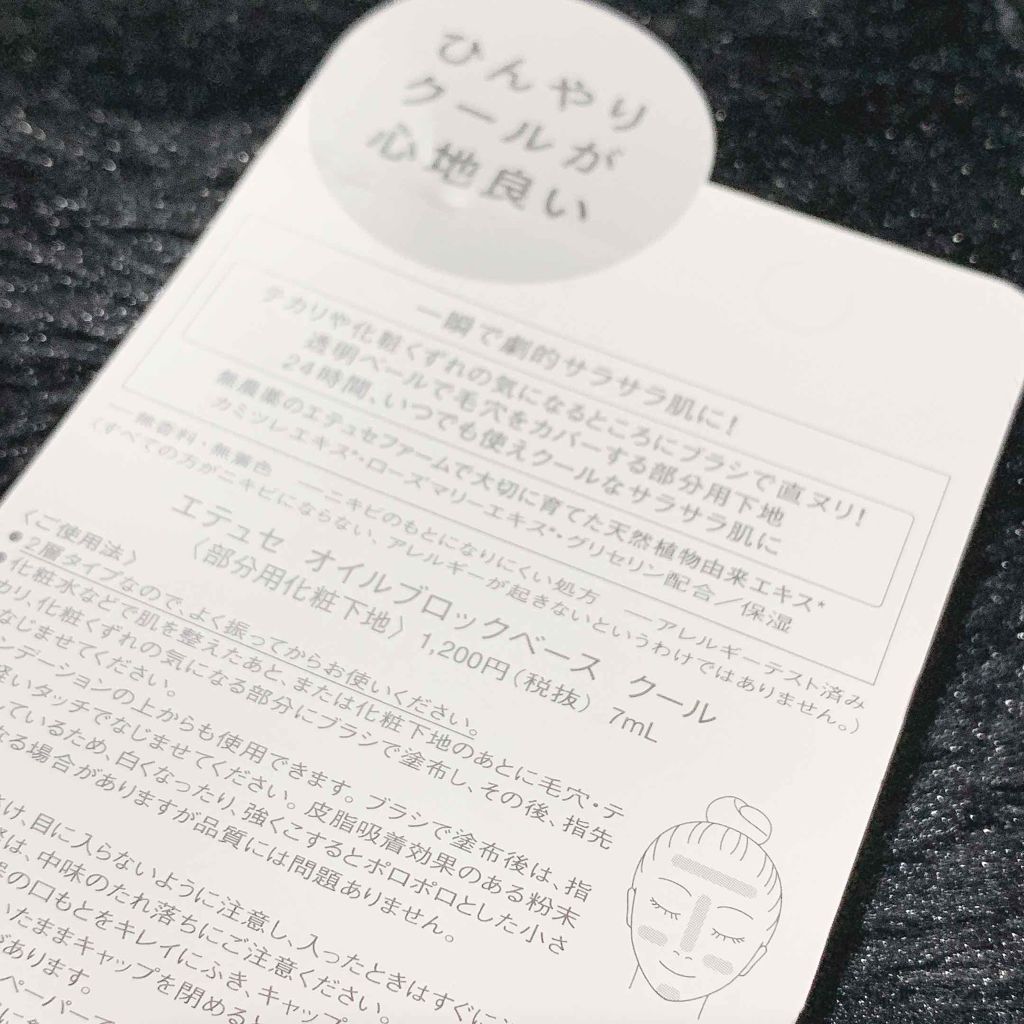 ひんやり
クールが
心地良い
一瞬で劇的サラサラ肌に!
テカリや化粧くずれの気になるところにブラシで直ヌリ!
透明ベールで毛穴をカバーする部分用下地
24時間、いつでも使えクールなサラサラ肌に
無農薬のエテュセファームで大切に育てた天然植物由来エキス*
カミツレエキス*・ローズマリーエキス*・グリセリン配合/保湿
―無香料・無着色 ―ニキビのもとになりにくい処方 ―アレルギーテスト済み
(すべての方がニキビにならない、アレルギーが起きないというわけではありません。)
エテュセ オイルブロックベース クール
〈部分用化粧下地〉 1,200円(税抜) 7mL
〈ご使用法〉
●2層タイプなので、よく振ってからお使いください。
●化粧水などで肌を整えたあと、または化粧下地のあとに毛穴・テ
カリ、化粧くずれの気になる部分にブラシで塗布し、その後、指先
なじませてください。
ンデーションの上からも使用できます。ブラシで塗布後は、指
軽いタッチでなじませてください。皮脂吸着効果のある粉末
しているため、白くなったり、強くこするとポロポロとした小さ
なる場合がありますが品質には問題ありません。
け、目に入らないように注意し、入ったときはすぐに
は、中味のたれ落ちにご注意ください。
の口もとをキレイにふき、キャップ
いたままキャップを閉めると
があります。
ペーパーで